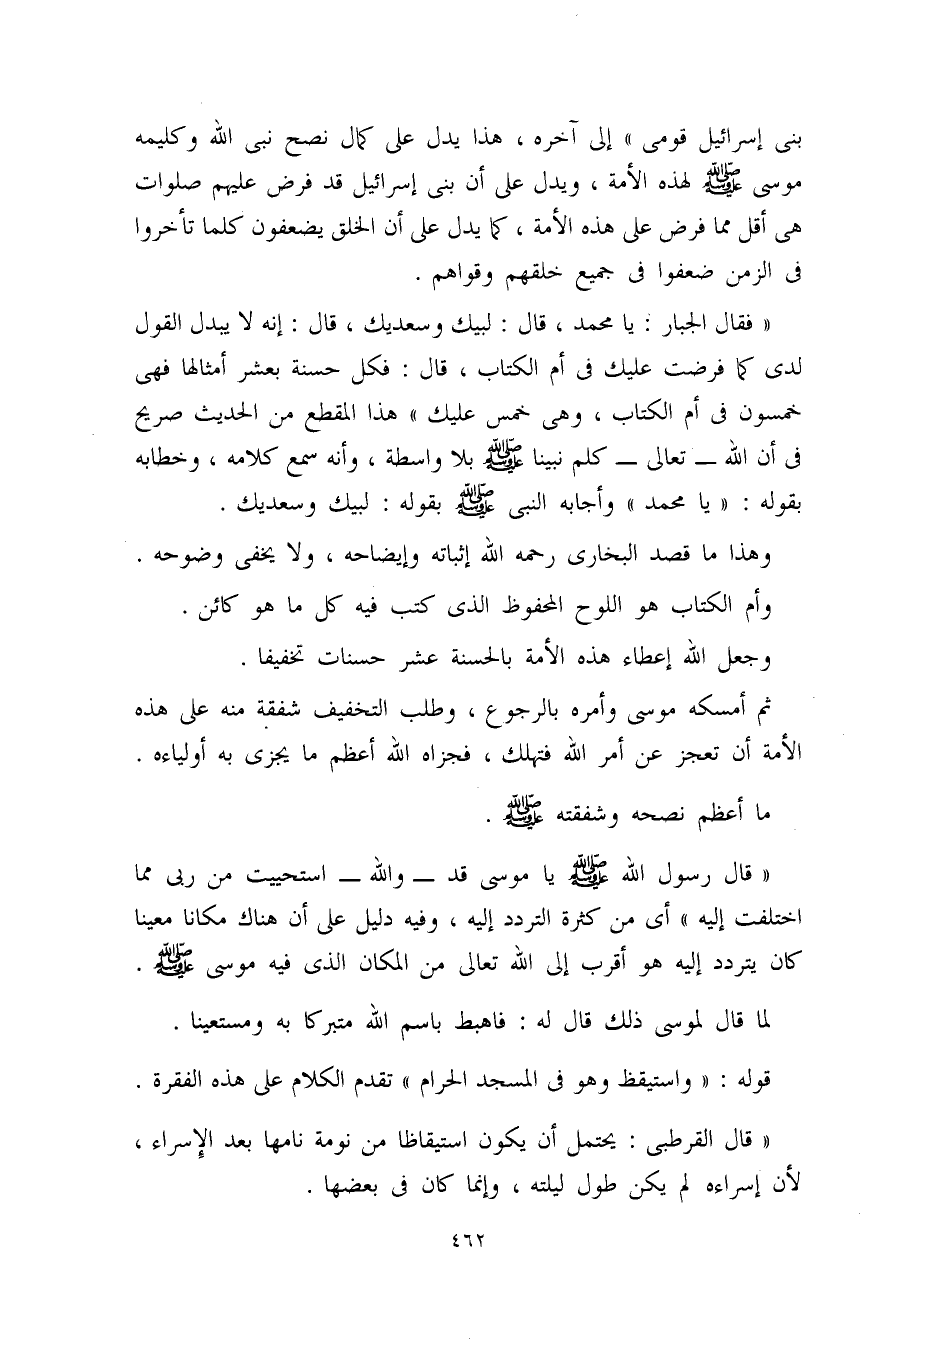 بنى إسرائيل قومى » إلى آخره ، هذا يدل على كمال نصح نبى الله وكليمه
موسى ﷺ لهذه الأمة ، ويدل على أن بنى إسرائيل قد فرض عليهم صلوات
هى أقل مما فرض على هذه الأمة ، كما يدل على أن الخلق يضعفون كلما تأخروا
فى الزمن ضعفوا فى جميع خلقهم وقواهم .
« فقال الجبار : يا محمد ، قال : لبيك وسعديك ، قال : إنه لا يبدل القول
لدى كما فرضت عليك فى أم الكتاب ، قال : فكل حسنة بعشر أمثالها فهى
خمسون فى أم الكتاب ، وهى خمس عليك » هذا المقطع من الحديث صريح
فى أن الله ــ تعالى ــ كلم نبينا ﷺ بلا واسطة ، وأنه سمع كلامه ، وخطابه
بقوله : « يا محمد » وأجابه النبى ﷺ بقوله : لبيك وسعديك .
وهذا ما قصد البخارى رحمه الله إثباته وإيضاحه ، ولا يخفى وضوحه .
وأم الكتاب هو اللوح المحفوظ الذى كتب فيه كل ما هو كائن .
وجعل الله إعطاء هذه الأمة بالحسنة عشر حسنات تخفيفا .
ثم أمسكه موسى وأمره بالرجوع ، وطلب التخفيف شفقة منه على هذه
الأمة أن تعجز عن أمر الله فتهلك ، فجزاه الله أعظم ما يجزى به أولياءه .
ما أعظم نصحه وشفقته ﷺ .
« قال رسول الله ﷺ يا موسى قد ــ والله ــ استحييت من ربى مما
اختلفت إليه » أى من كثرة التردد إليه ، وفيه دليل على أن هناك مكانا معينا
كان يتردد إليه هو أقرب إلى الله تعالى من المكان الذى فيه موسى ﷺ .
لما قال لموسى ذلك قال له : فاهبط باسم الله متبركا به ومستعينا .
قوله : « واستيقظ وهو فى المسجد الحرام » تقدم الكلام على هذه الفقرة .
« قال القرطبى : يحتمل أن يكون استيقاظا من نومة نامها بعد الإسراء ،
لأن إسراءه لم يكن طول ليلته ، وإنما كان فى بعضها .
٤٦٢